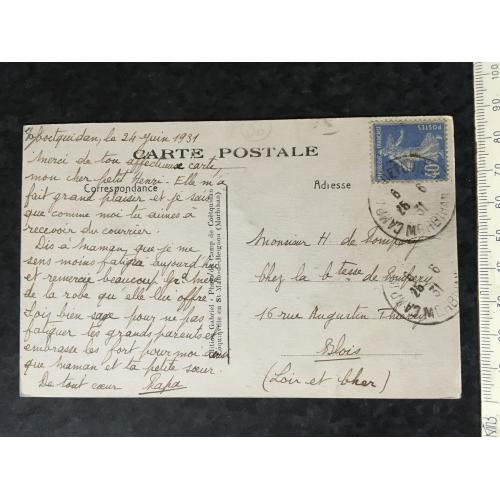 Coëtquidan, le 24 Juin 1931
Merci de ton affectueuse carte
mon cher petit Henri. Elle m'a
fait grand plaisir et je sais
que comme moi tu aimes à
recevoir du courrier.
Dis à Maman que je me
sens moins fatigué aujourd'hui
et remercie beaucoup Gd Mère
de la robe qu'elle lui offre.
Sois bien sage pour ne pas
fatiguer tes grands parents et
embrasse les fort pour moi ainsi
que Maman et la petite sœur.
De tout cœur Papa
CARTE POSTALE
Correspondance
Adresse
Monsieur H de
Chez la Ctesse de
16 rue Augustin Thierry
Blois
(Loir et Cher)
POSTES
40
CAMP
MORBIHAN
26 6
31